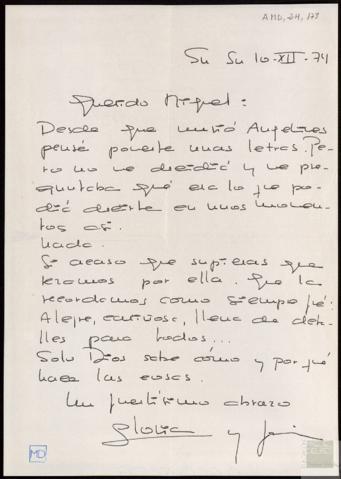 AMD, 24, 179
Su Su 10-XII-74
Querido Miguel:
Desde que murió Angelines
pensé ponerte unas letras. Pe-
ro no me decidía y me pre-
guntaba qué era lo que po-
día decirte en unos momen-
tos así.
Nada.
Si acaso que supieras que
rezamos por ella. Que la
recordamos como siempre fué:
Alegre, cariñosa, llena de deta-
lles para todos...
Solo Dios sabe cómo y por qué
hace las cosas.
Un fuertísimo abrazo
Gloria y
MD